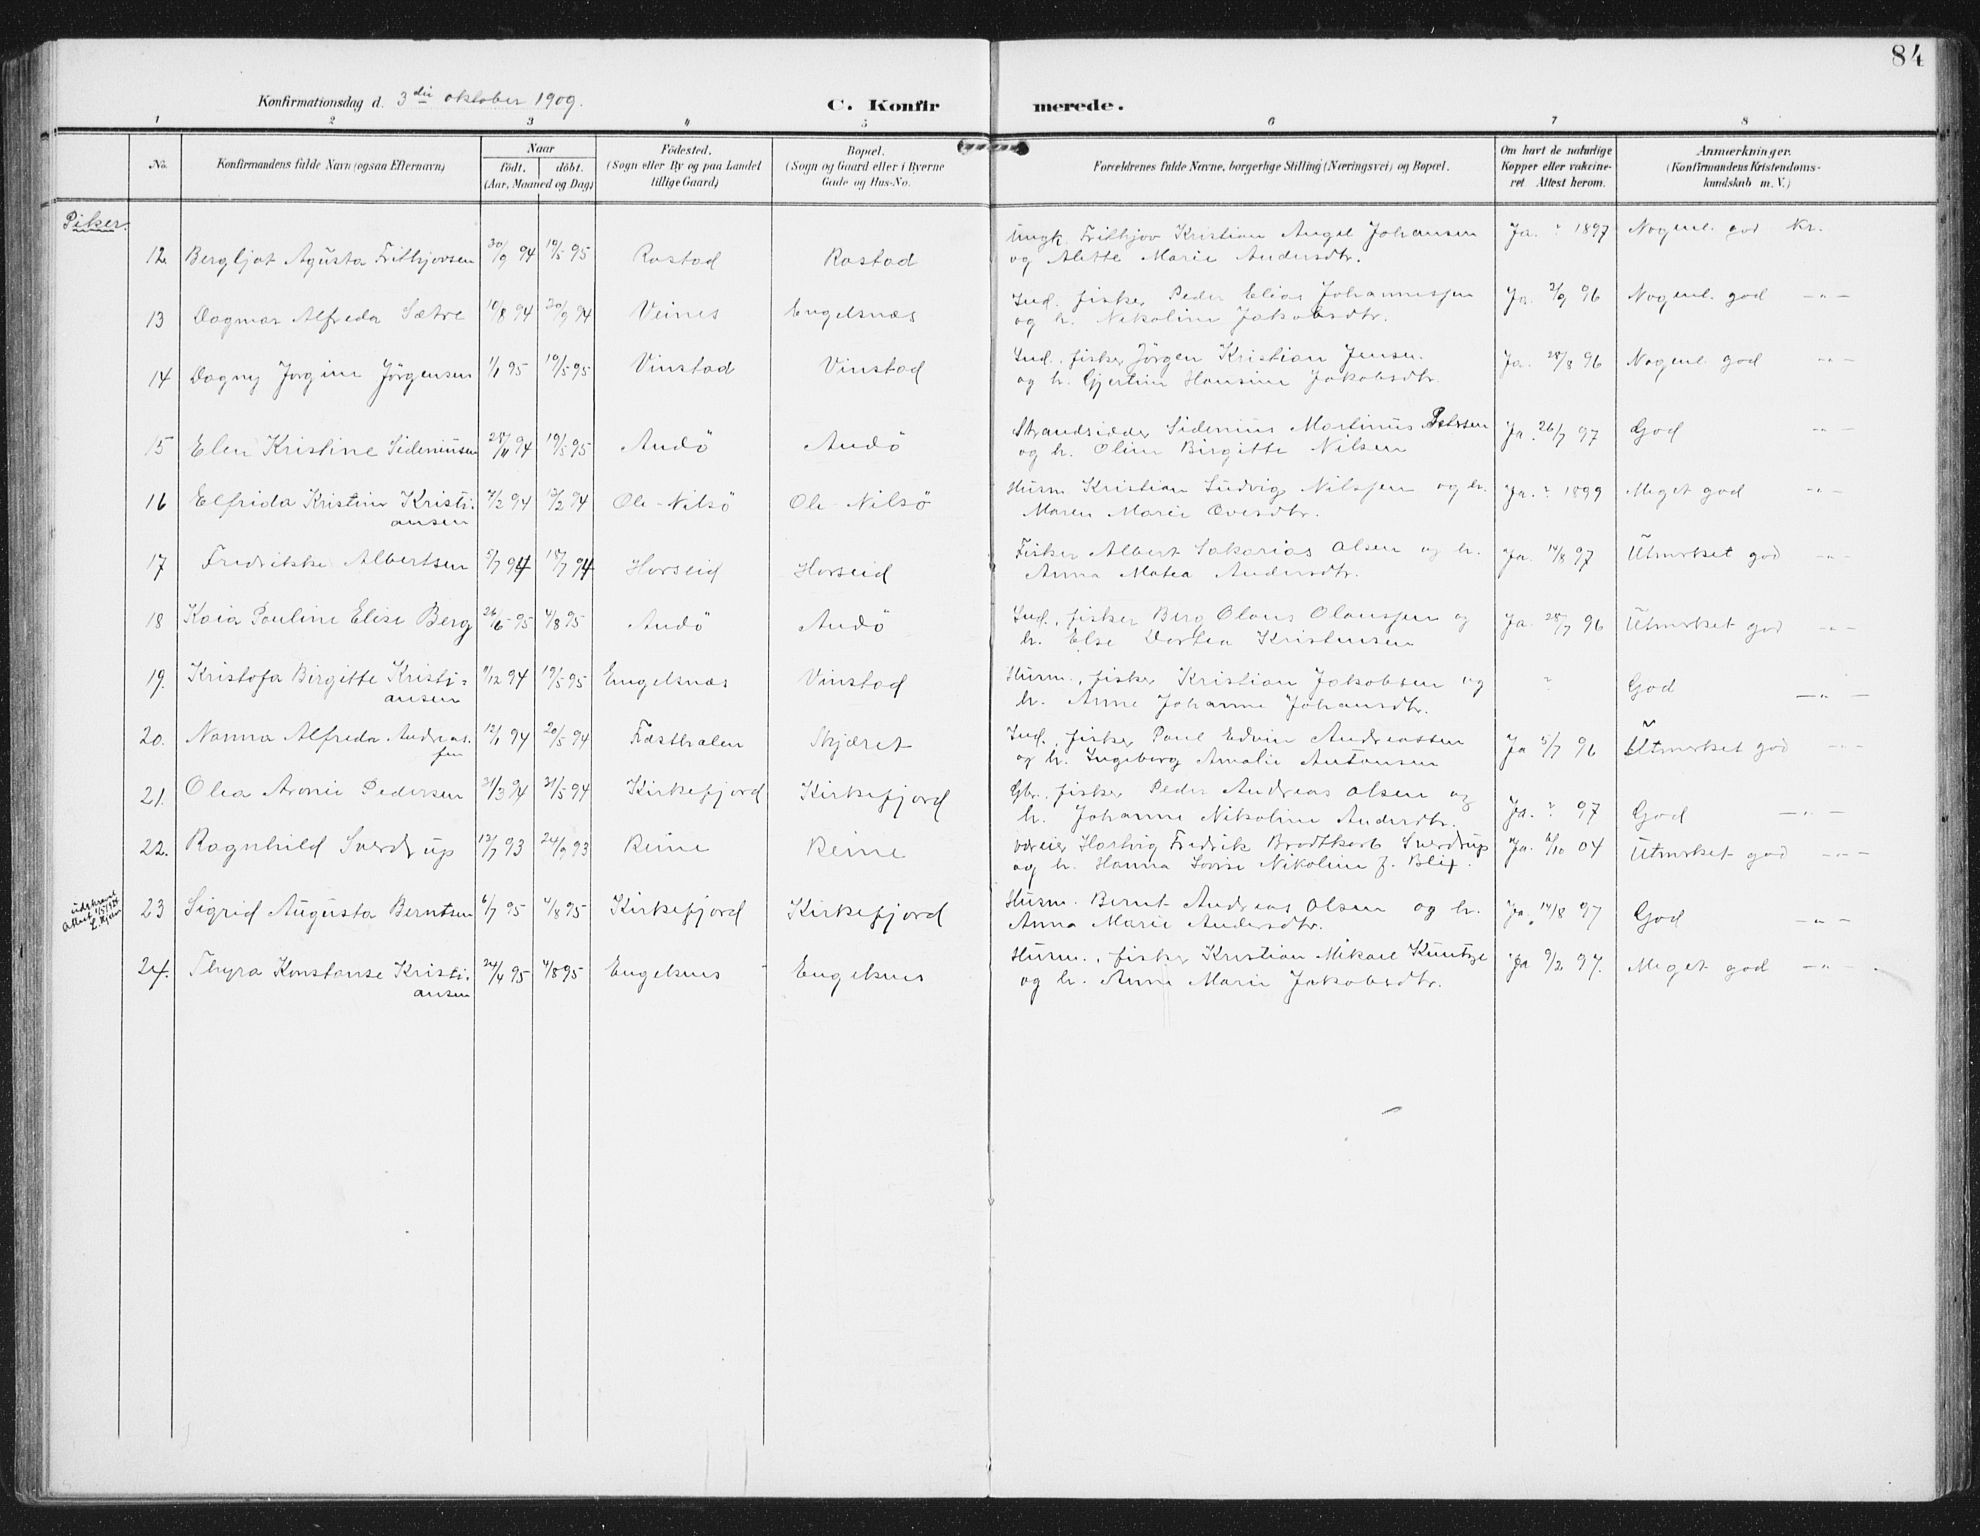 84
Konfirmationsdag d. 3die oktober 1909.
C. Konfirmerede.
1 2 3 4 5 6 7 8
No.
Konfirmandens fulde Navn (ogsaa Efternavn)
Naar
født. døbt.
(Aar, Maaned og Dag)
Födested.
(Sogn eller By og paa Landet
tillige Gaard)
Bopæl.
(Sogn og Gaard eller i Byerne
Gade og Hus-No.
Forældrenes fulde Navne, borgerlige Stilling (Næringsvei) og Bopæl.
Om havt de naturlige
Kopper eller vakcine-
ret Attest herom.
Anmærkninger.
(Konfirmandens Kristendoms-
kundskab m. V.)
Piker.
12 Bergljot Agusta Frithjovsen 30/9 94 19/5 95 Rostad Rostad Ungk. Frithjov Kristian Angel Johansen Ja. ? 1897 Nogenl. god Kr.
og Alette Marie Andersdtr.
13 Dagmar Alfreda Sætre 10/8 94 30/9 94 Veines Engelsnæs Ind. fisker Peder Elias Johannessen Ja. 2/9 96 Nogenl. god —"—
og h. Nikoline Jakobsdtr.
14 Dagny Jorgine Jörgensen 1/1 95 19/5 95 Vinstad Vinstad Ind. fisker Jörgen Kristian Jensen Ja. 28/8 96 Nogenl. god —"—
og h. Gjertine Hansine Jakobsdtr.
15 Elen Kristine Sideniussen 28/11 94 19/5 95 Andö Andö Strandsidder Sidenius Martinus Petersen Ja. 26/7 97 God —"—
og h. Oline Birgitte Nilsen
16 Elfrida Kristine Kristi- 7/2 94 Ole-Nilsö Ole-Nilsö Husm. Kristian Ludvig Nilssen og h. Ja. ? 1899 Meget god —"—
ansen Maren Marie Ovesdtr.
17 Fredrikke Albertsen 5/7 94 18/7 94 Horseid Horseid Fisker Albert Sakarias Olsen og h. Ja. 14/8 97 Utmerket god —"—
Anna Matea Andersdtr.
18 Kaia Pauline Elise Berg 26/6 95 4/8 95 Andö Andö Ind. fisker Berg Olaus Olaussen og Ja. 28/7 96 Utmerket god —"—
h. Else Dortea Kristensen
19. Kristofa Birgitte Kristi- 9/12 94 19/5 95 Engelsnæs Vinstad Husm., fisker Kristian Jakobsen og ? God —"—
ansen h. Anne Johanne Johansdtr.
20. Nanna Alfreda Andreas- 12/1 94 20/5 94 Skjæret Ind. fisker Paul Edvin Andreassen Ja 5/7 96 Utmerket god —"—
sen og h. Ingeborg Amalie Antonsen
21. Olea Aronie Pedersen 31/3 94 31/5 94 Kirkefjord Kirkefjord Gbr. fisker Peder Andreas Olsen og Ja. ? 97 God —"—
h. Johanne Nikoline Andersdtr.
22. Ragnhild Sverdrup 13/7 93 24/9 93 Reine Reine væreier Hartvig Fredrik Brodtkorb Sverdrup Ja. 6/10 04 Utmerket god —"—
og h. Hanna Lovise Nikoline f. Blix.
udskrevet
attest 1/5 1926
23 Sigrid Augusta Berntsen 6/7 95 4/8 95 Kirkefjord Kirkefjord Husm. Bernt Andreas Olsen og h. Ja. 14/8 97 God —"—
Anna Marie Andersdtr.
24. Thyra Konstanse Kristi- 24/4 95 4/8 95 Engelsnes Engelsnes Husm., fisker Kristian Mikael Kuntze Ja 9/2 97. Meget god —"—
ansen og h. Anne Marie Jakobsdtr.